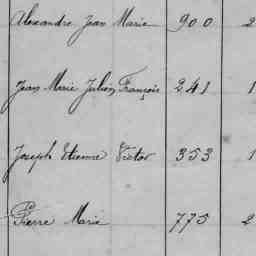 Alexandre Jean Marie 900 2
Jean Marie Julien François 241 1
Joseph Etienne Victor 353 1
Pierre Marie 775 2